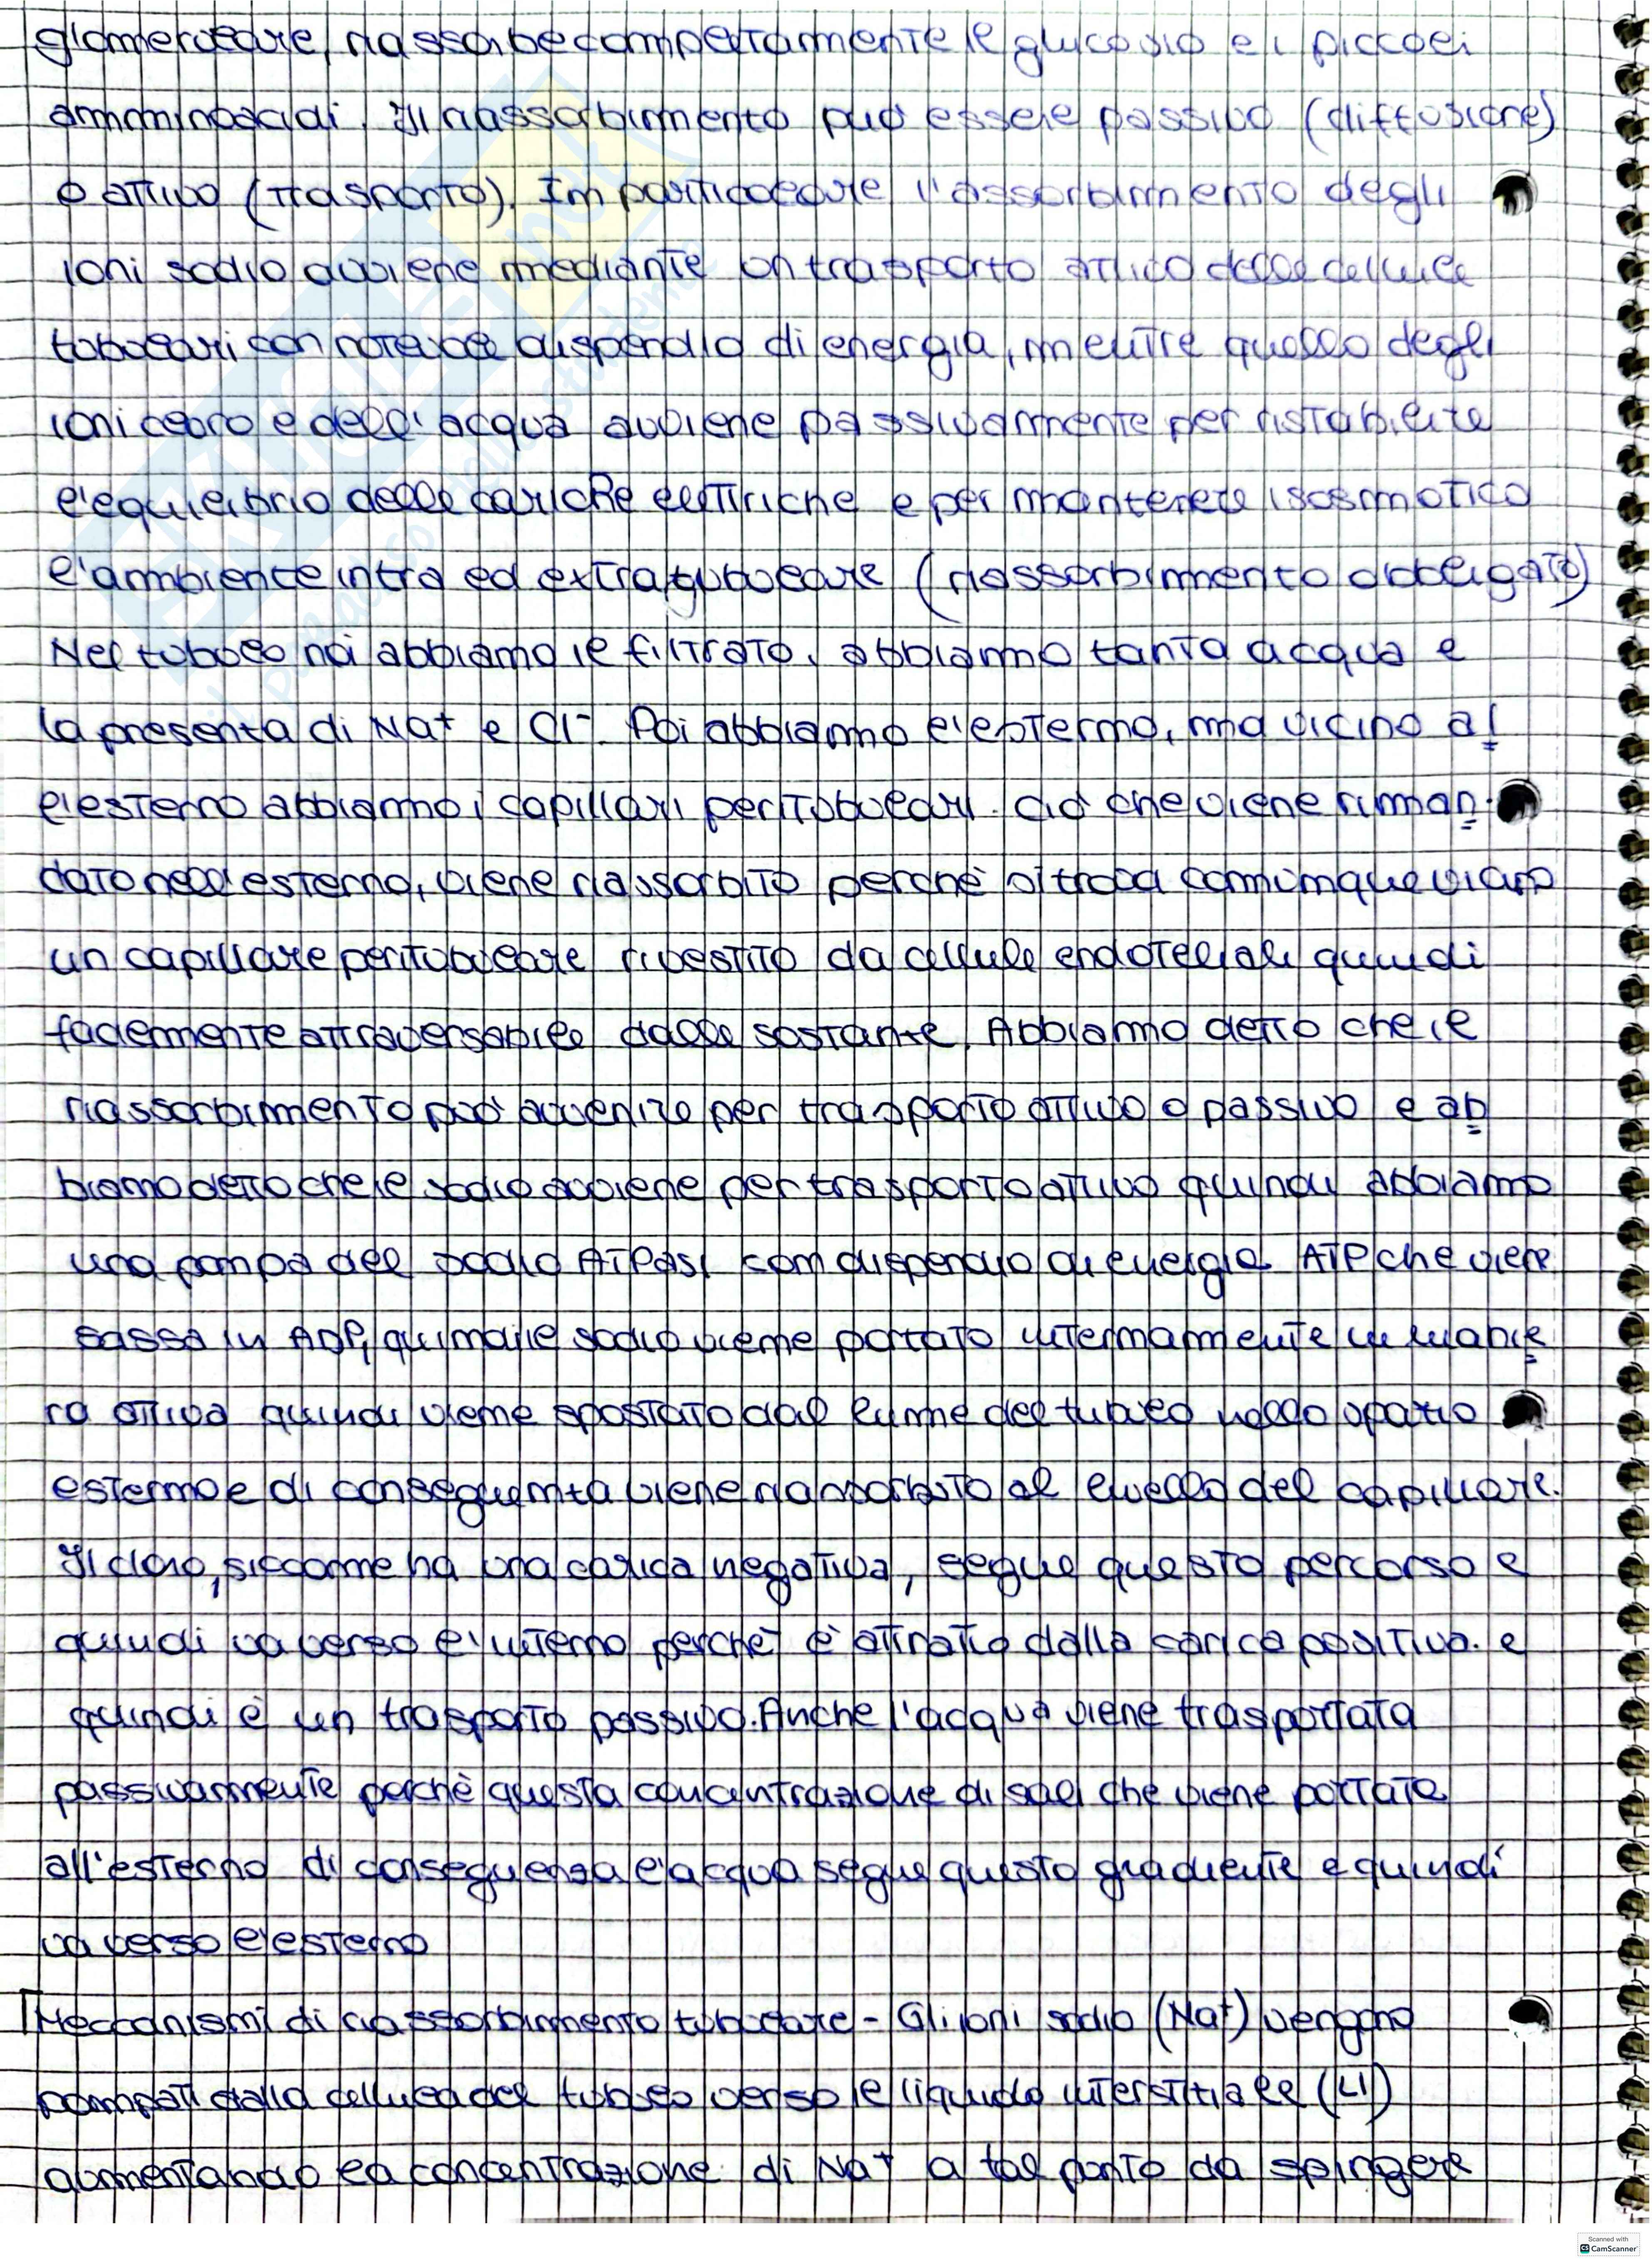 glomerulare, riassorbe completamente il glucosio e i piccoli
amminoacidi. Il riassorbimento può essere passivo (diffusione)
o attivo (trasporto). In particolare l'assorbimento degli
ioni sodio avviene mediante un trasporto attivo delle cellule
tubulari con notevole dispendio di energia, mentre quello degli
ioni cloro e dell'acqua avviene passivamente per ristabilire
l'equilibrio delle cariche elettriche e per mantenere isosmotico
l'ambiente intra ed extratubulare (riassorbimento obbligato)
Nel tubulo noi abbiamo il filtrato, abbiamo tanta acqua e
la presenza di Na+ e Cl-. Poi abbiamo l'esterno, ma vicino al
l'esterno abbiamo i capillari peritubulari. Ciò che viene riman-
dato nell'esterno, viene riassorbito perché si trova comunque vicino
un capillare peritubulare rivestito da cellule endoteliali quindi
facilmente attraversabile dalle sostanze. Abbiamo detto che il
riassorbimento può avvenire per trasporto attivo o passivo e ab
biamo detto che il sodio avviene per trasporto attivo quindi abbiamo
una pompa del sodio ATPasi con dispendio di energia ATP che viene
in ADP, quindi il sodio viene portato internamente in manie
ra attiva quindi viene spostato dal lume del tubulo nello spazio
esterno e di conseguenza viene riassorbito al livello del capillare.
Il cloro, siccome ha una carica negativa, segue questo percorso e
quindi va verso l'interno perché è attratto dalla carica positiva. e
quindi è un trasporto passivo. Anche l'acqua viene trasportata
passivamente perchè questa concentrazione di sali che viene portata
all'esterno di conseguenza l'acqua segue questo gradiente e quindi
va verso l'esterno
Meccanismi di riassorbimento tubulare - Gli ioni sodio (Na+) vengono
pompati dalla cellula del tubulo verso il liquido interstiziale (LI)
aumentando la concentrazione di Na+ a tal punto da spingere
SKUOLA.net
il paradiso dello studente
Scanned with
CS CamScanner